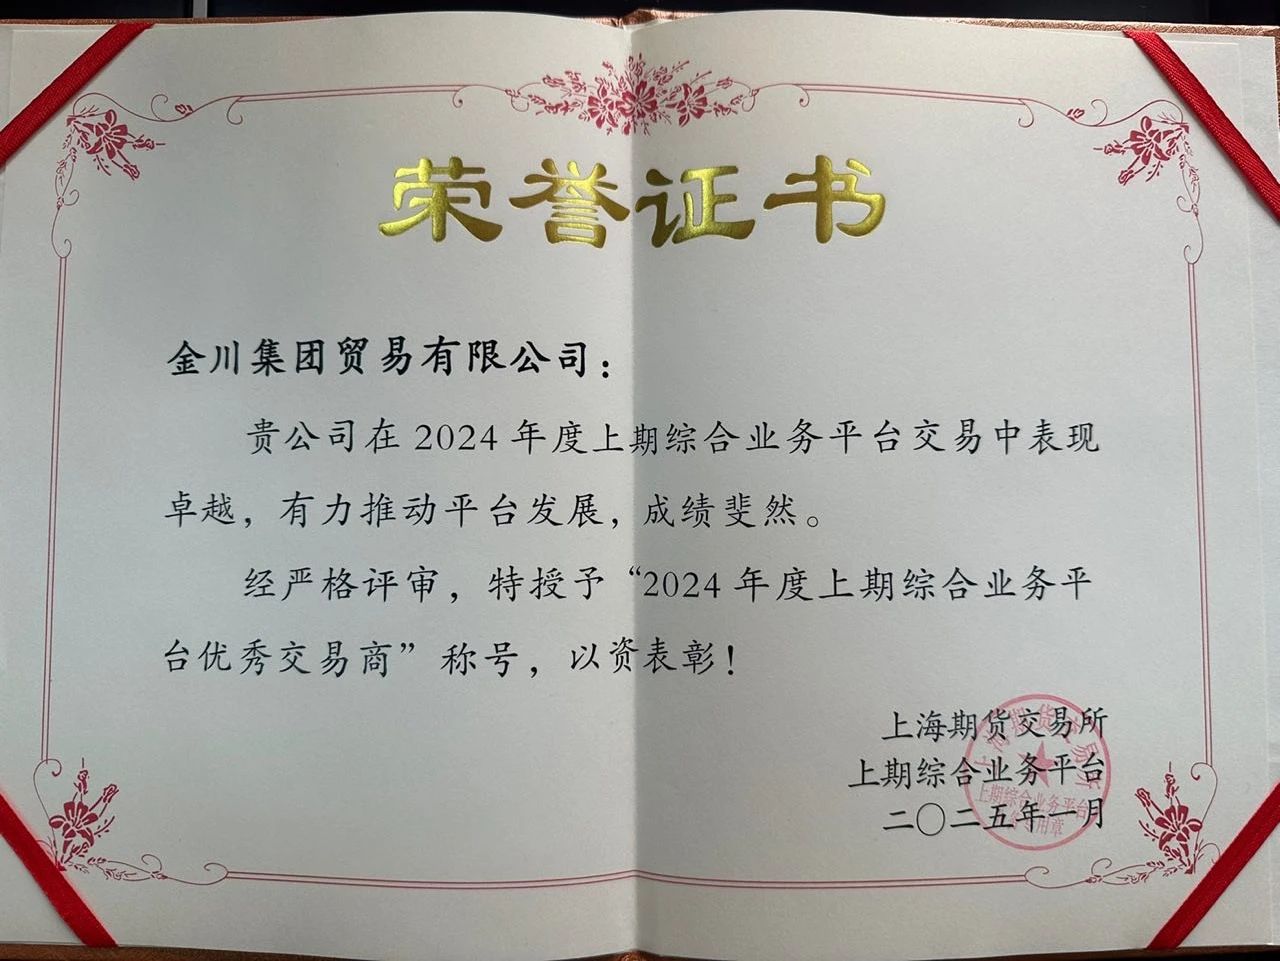 荣誉证书
金川集团贸易有限公司：
贵公司在2024年度上期综合业务平台交易中表现
卓越，有力推动平台发展，成绩斐然。
经严格评审，特授予“2024年度上期综合业务平
台优秀交易商”称号，以资表彰！
上海期货交易所
上期综合业务平台
二〇二五年一月
上海期货交易所
上期综合业务平台
专用章